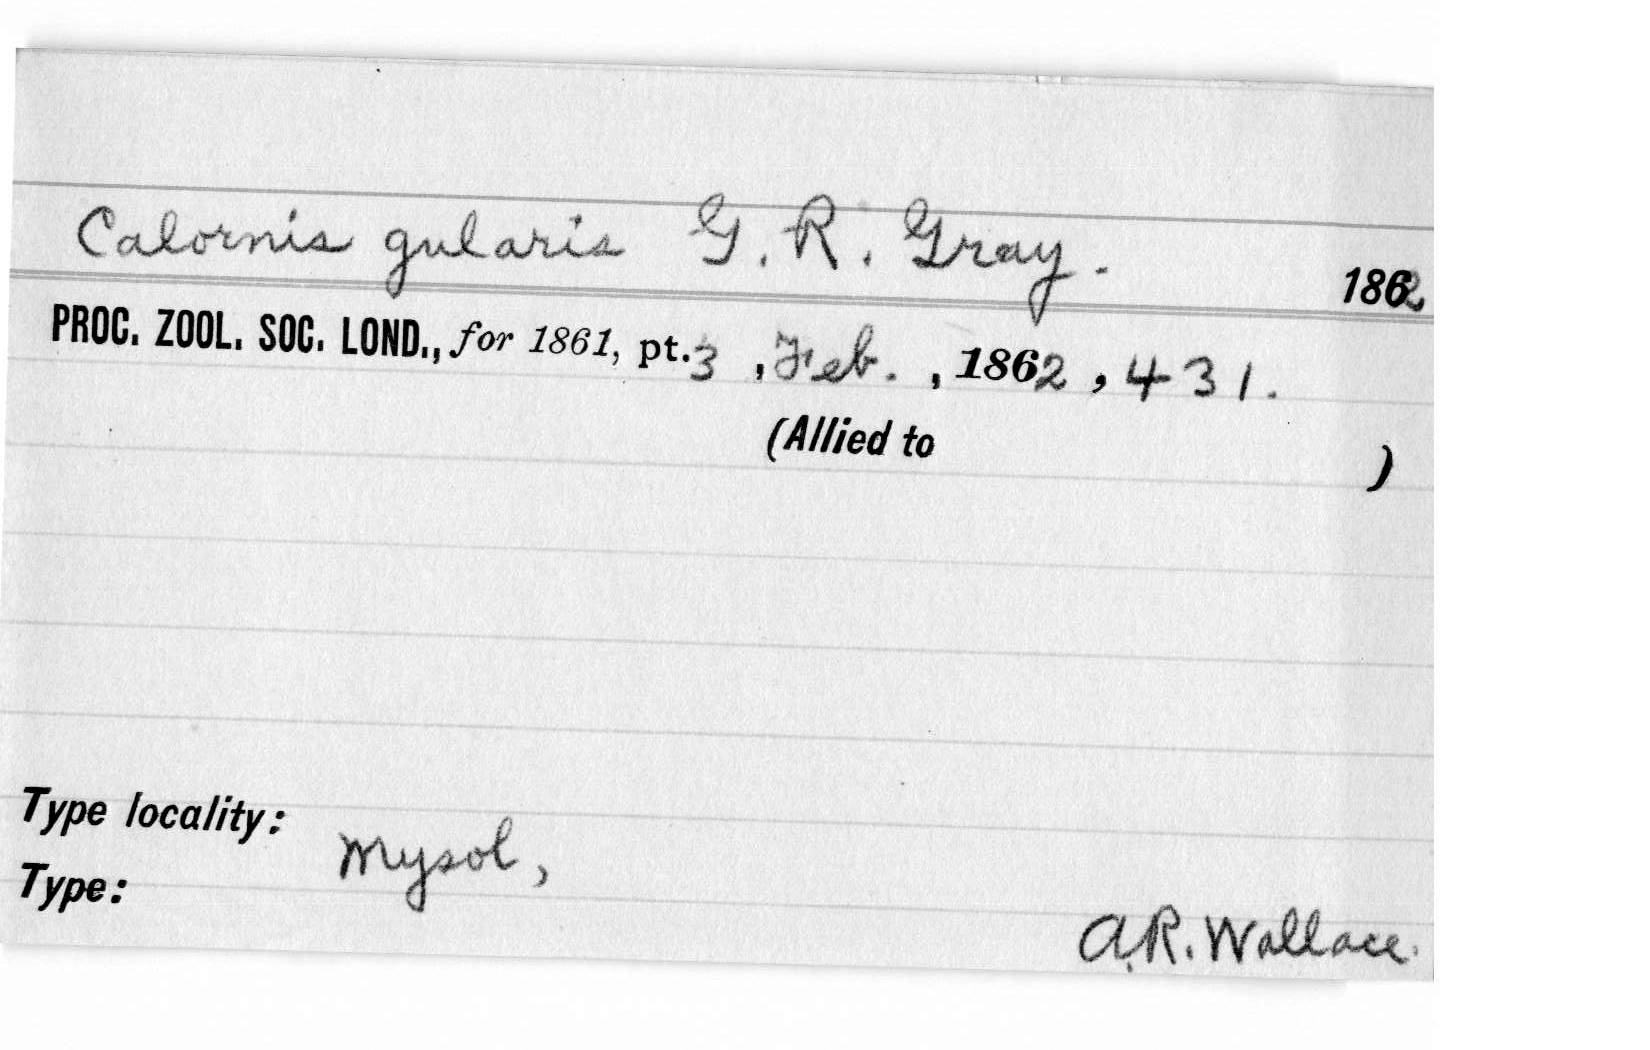 Calornis gularis G. R. Gray. 1862
PROC. ZOOL. SOC. LOND., for 1861, pt. 3, Feb., 1862, 431.
(Allied to )
Type locality: Mysol,
Type:
A.R. Wallace.